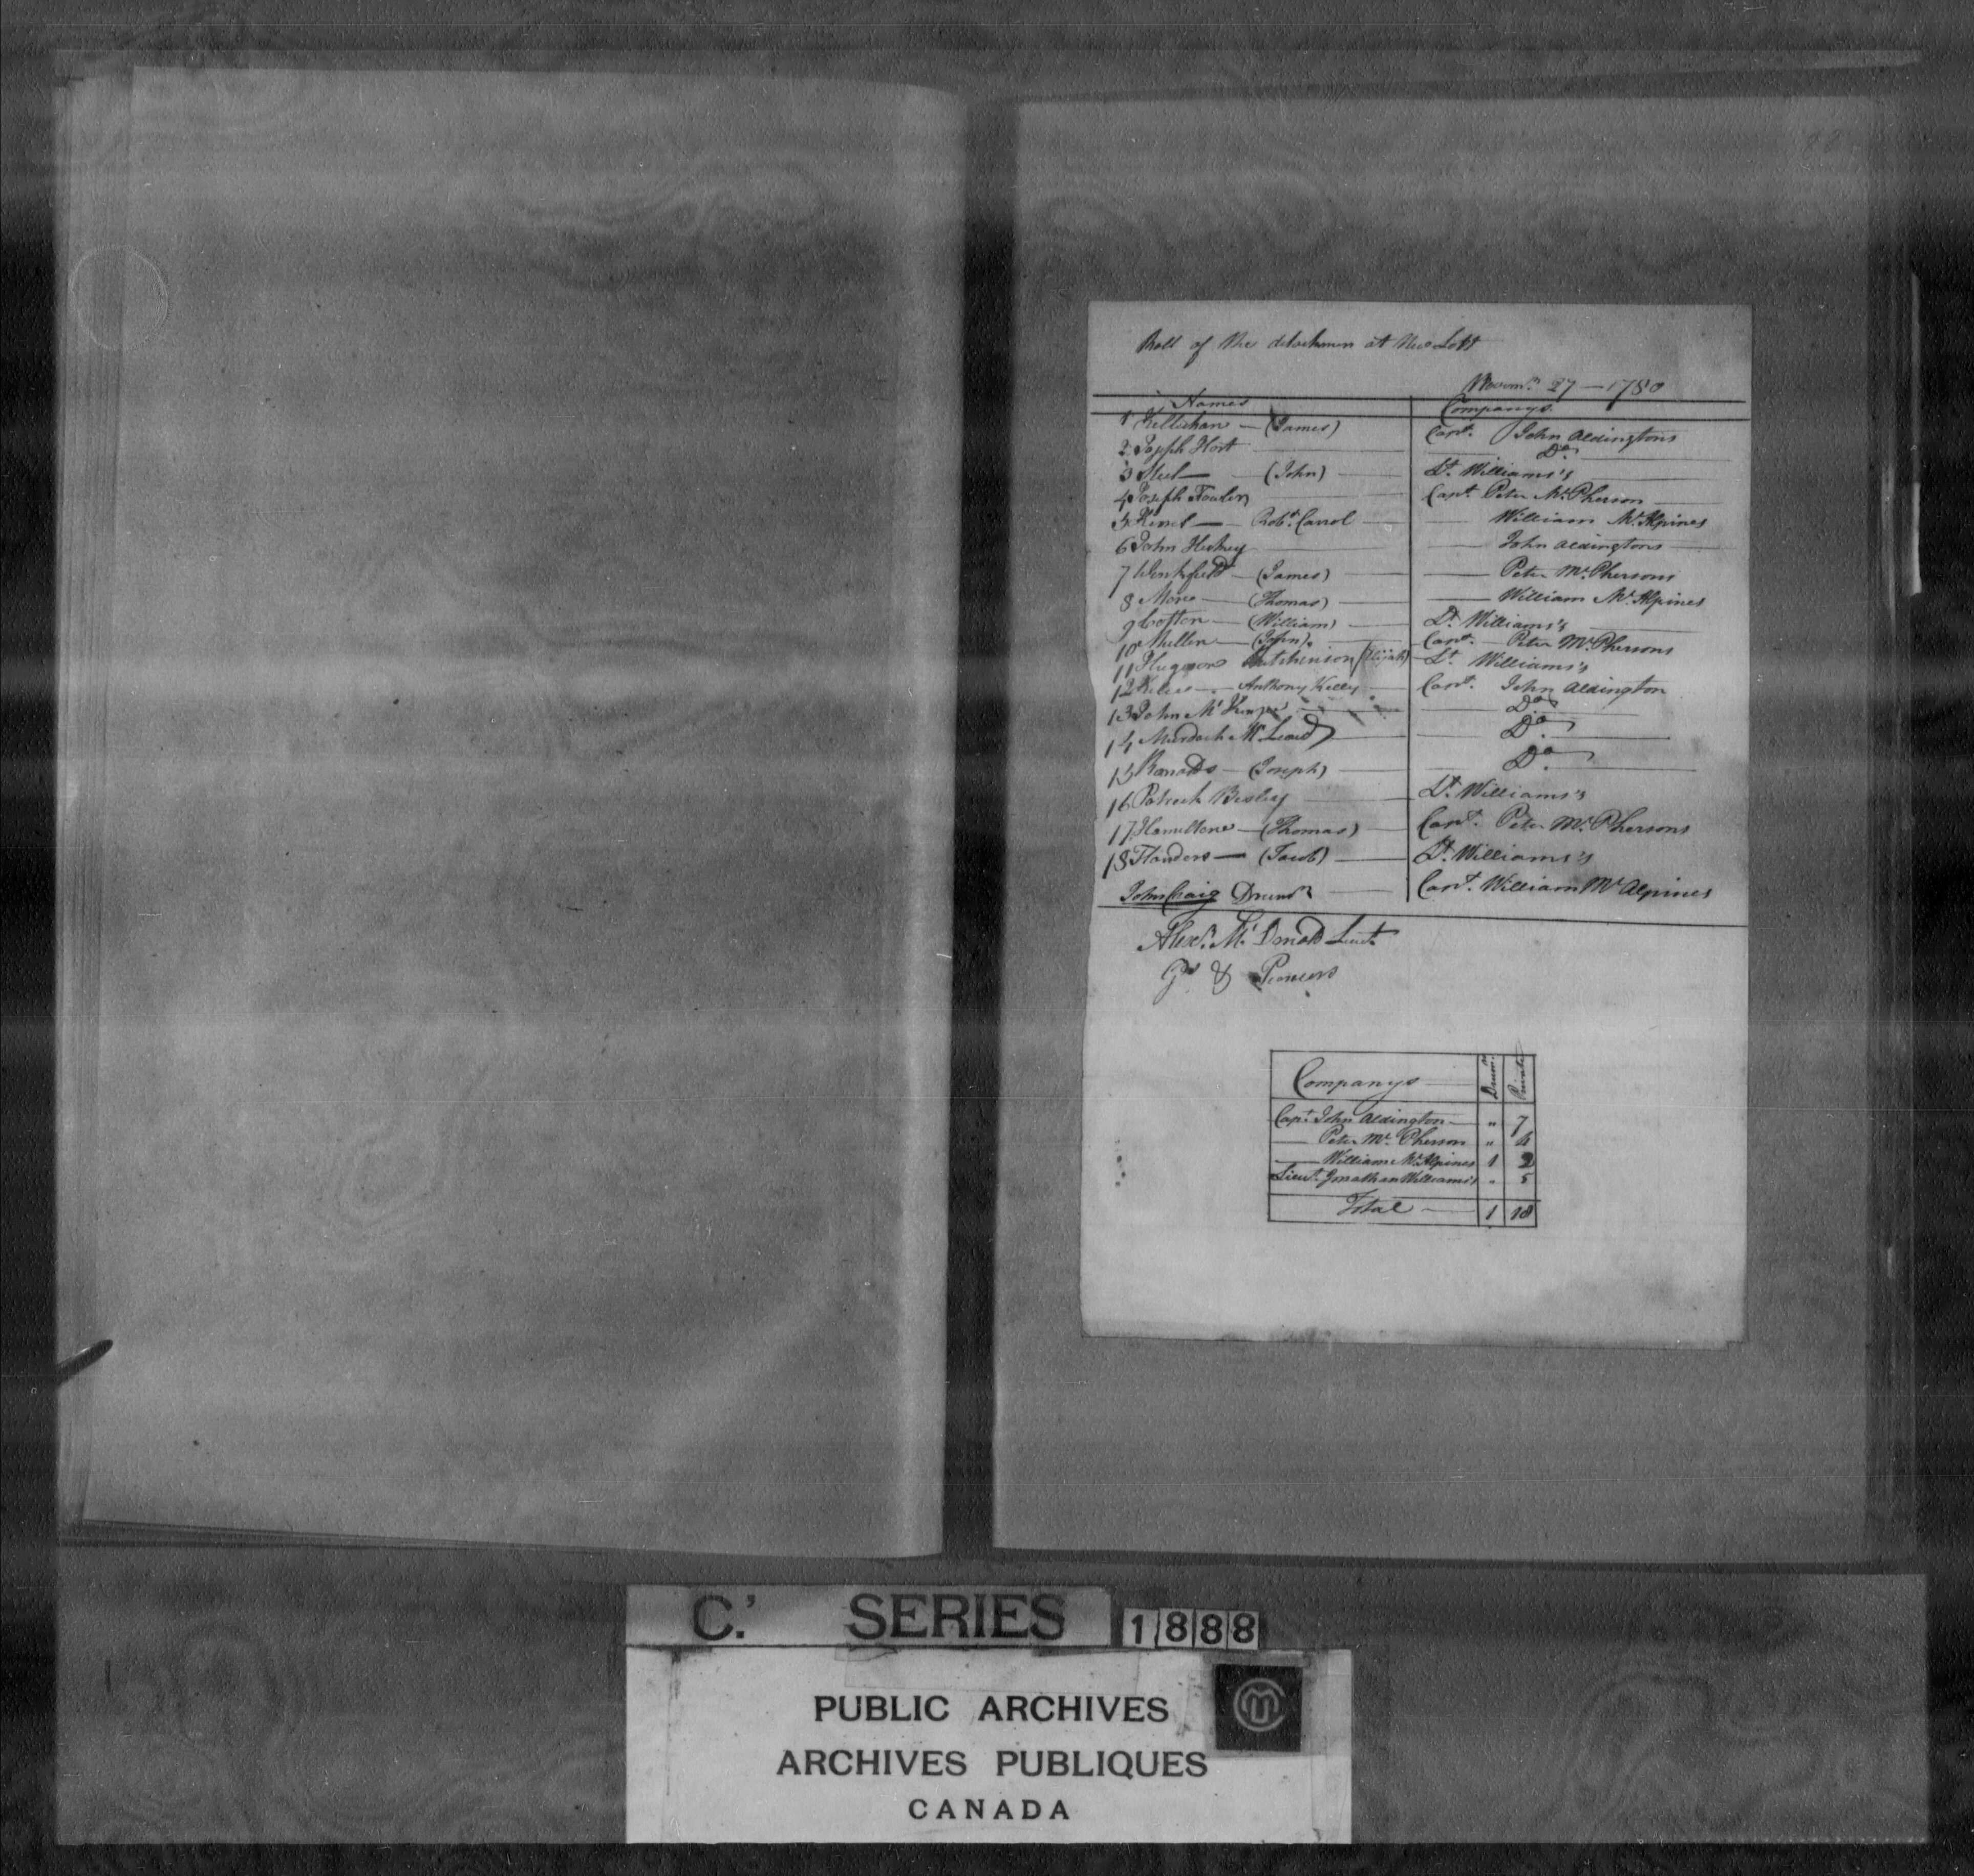 Roll of the detachmen at
Novemr. 27 — 1780
Names Companys.
1 Kellichan — (James) Capt. John Aldingtons
2 Joseph Hort Do.
3 Steel — (John) Lt. Williams's
4 Joseph Fowler Capt. Peter McPherson
5 — Robt. Carrol — William McAlpines
6 John — John Aldingtons
7 — (James) — Peter McPhersons
8 More — (Thomas) — William McAlpines
9 Cotton — (William) Lt. Williams's
10 Miller — (John) Capt. — Peter McPhersons
11 Hutchinson (Elijah) Lt. Williams's
12 — Anthony Kelly Capt. John Aldington
13 John Do.
14 Murdoch McLeod Do.
15 — (Joseph) Do.
16 Patrick Lt. Williams's
17 Hamiltone — (Thomas) Capt. Peter McPhersons
18 Flanders — (Jacob) Lt. Williams's
John Craig Drumr Capt. William McAlpines
Alexr. McDonald Lieut.
& Pioneers
Companys Drumr. Privates
Capt. John Aldington — " 7
— Peter Mc.Pherson " 4
— William McAlpines 1 2
Lieut. Jonathan Williams's " 5
Total — 1 18
C.' SERIES 1888
PUBLIC ARCHIVES
ARCHIVES PUBLIQUES
CANADA